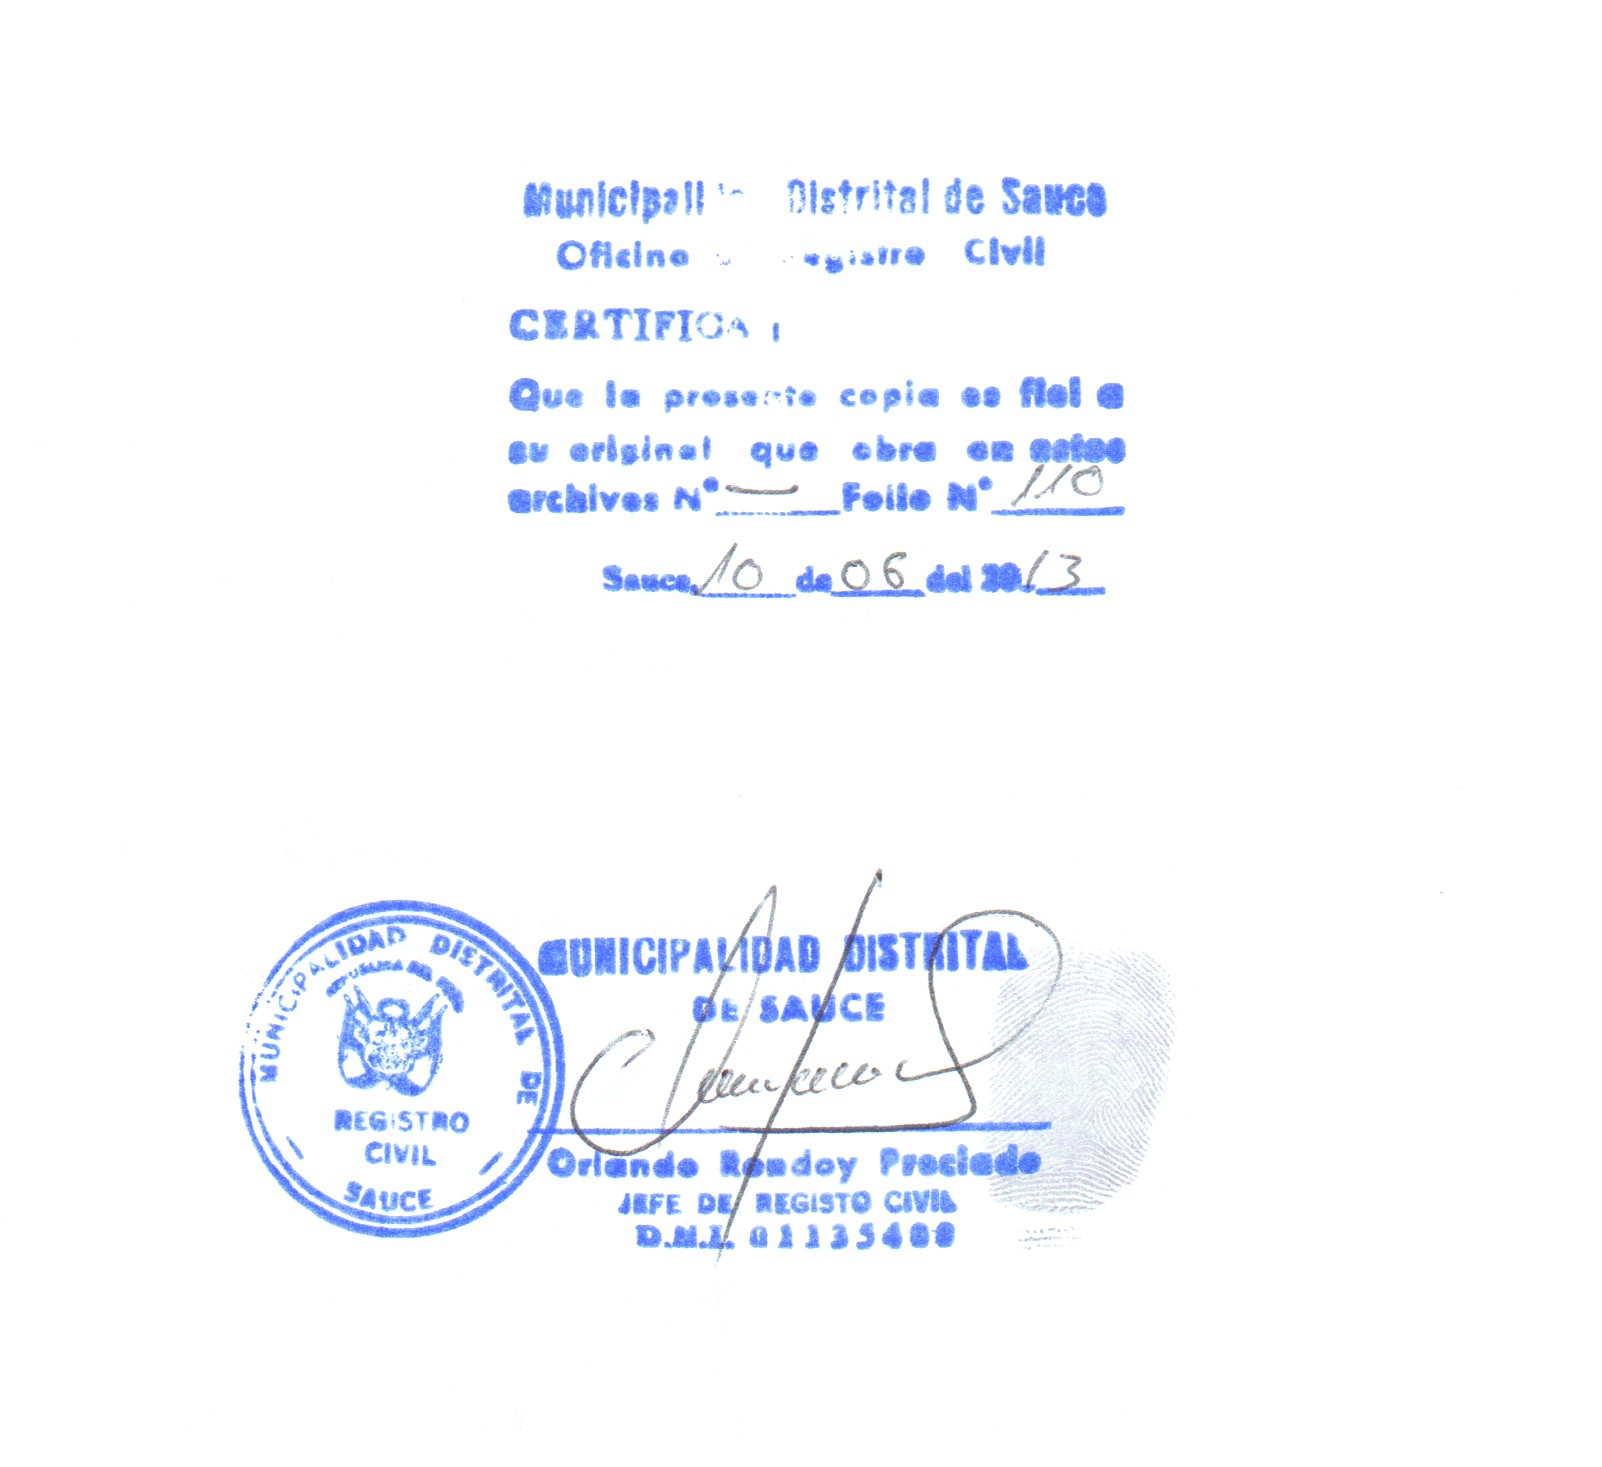 Municipali Distrital de Sauce
Oficina Registro Civil
CERTIFICA :
Que la presente copia es fiel a
su original que obra en estos
archivos N° — Folio N° 110
Sauce, 10 de 06 del 20 13
MUNICIPALIDAD DISTRITAL DE
REPUBLICA DEL PERU
REGISTRO
CIVIL
SAUCE
MUNICIPALIDAD DISTRITAL
DE SAUCE
Orlando Rondoy Preciado
JEFE DE REGISTO CIVIL
D.N.I.